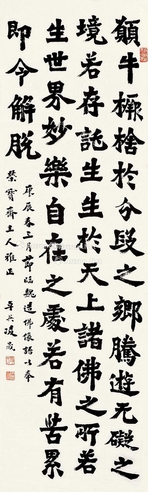 願牛橛捨於分段之鄉騰遊无礙之
境若存託生生於天上諸佛之所若
生世界妙樂自在之處若有苦累
即令解脫
庚辰春三月節臨魏造佛像語以奉
榮寶齋主人雅正